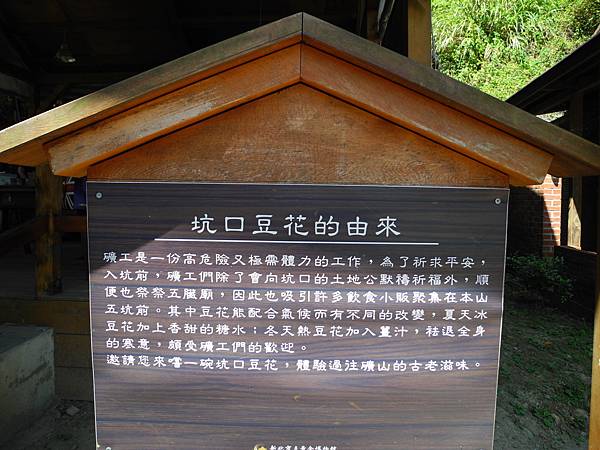 坑口豆花的由來
礦工是一份高危險又極需體力的工作，為了祈求平安，
入坑前，礦工們除了會向坑口的土地公默禱祈福外，順
便也祭祭五臟廟，因此也吸引許多飲食小販聚集在本山
五坑前。其中豆花能配合氣候而有不同的改變，夏天冰
豆花加上香甜的糖水；冬天熱豆花加入薑汁，祛退全身
的寒意，頗受礦工們的歡迎。
邀請您來嚐一碗坑口豆花，體驗過往礦山的古老滋味。
新北市立黃金博物館